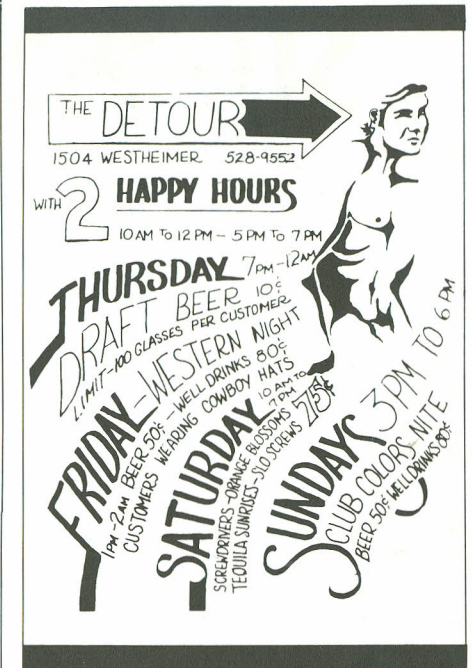 THE DETOUR
1504 WESTHEIMER 528-9552
WITH 2 HAPPY HOURS
10 AM TO 12 PM - 5 PM TO 7 PM
THURSDAY 7PM-12AM
DRAFT BEER 10¢
LIMIT-100 GLASSES PER CUSTOMER
FRIDAY-WESTERN NIGHT
1PM-2AM BEER 50¢-WELL DRINKS 80¢
CUSTOMERS WEARING COWBOY HATS
SATURDAY 10 AM TO 7 PM 75¢
SCREWDRIVERS-ORANGE BLOSSOMS
TEQUILA SUNRISES-SLO SCREWS
SUNDAYS 3PM TO 6 PM
CLUB COLORS NITE
BEER 50¢ WELL DRINKS 80¢